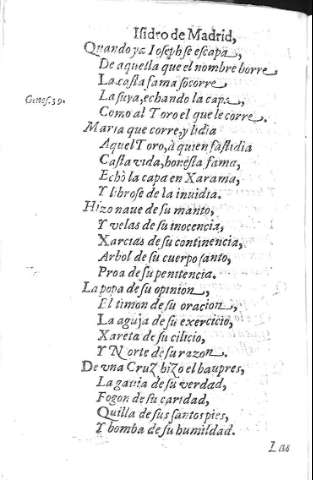 Isidro de Madrid,
Quando ya Ioseph se escapa,
De aquella que el nombre borre
La casta fama socorre
Genes. 39.
La suya, echando la capa,
Como al Toro el que le corre.
Maria que corre, y lidia
Aquel Toro, à quien fastidia
Casta vida, honesta fama,
Echò la capa en Xarama,
Y librose de la inuidia.
Hizo naue de su manto,
Y velas de su inocencia,
Xarcias de su continencia,
Arbol de su cuerpo santo,
Proa de su penitencia.
La popa de su opinion,
El timon de su oracion,
La aguja de su exercicio,
Xareta de su cilicio,
Y Norte de su razon.
De vna Cruz hizo el baupres,
La gauia de su verdad,
Fogon de su caridad,
Quilla de sus santos pies,
Y bomba de su humildad.
Las